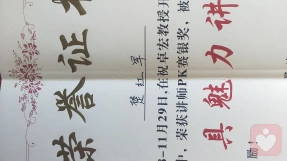 荣誉证
红军
11月29日,在祝卓宏教授开
中,荣获讲师PK赛银奖,被
具魅力讲
励!